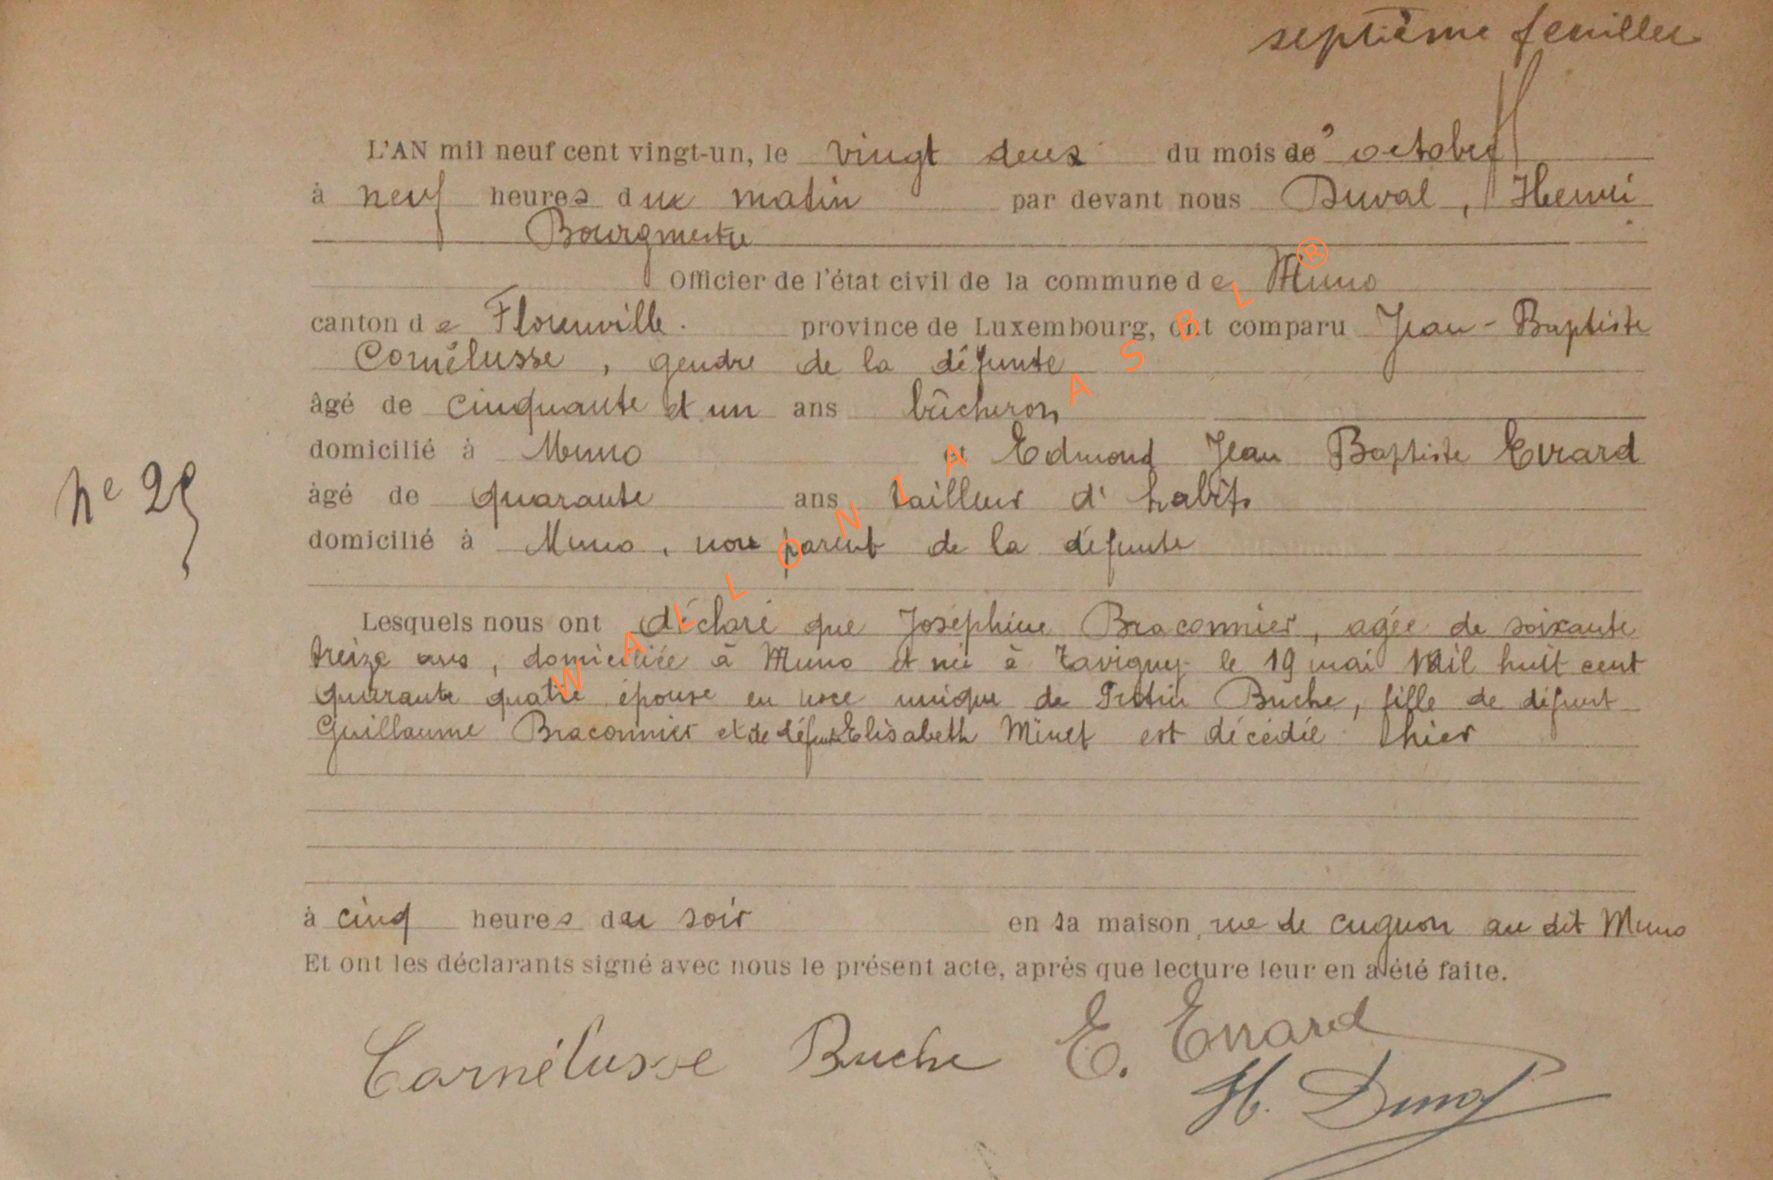 septième feuillet
L'AN mil neuf cent vingt-un, le vingt deux du mois de octobre
à neuf heures du matin par devant nous Duval, Henri
Bourgmestre
Officier de l'état civil de la commune de Muno
canton de Florenville. province de Luxembourg, ont comparu Jean-Baptiste
Cornélusse, gendre de la défunte
âgé de cinquante et un ans bûcheron
domicilié à Muno et Edmond Jean Baptiste Evrard
nº 25
âgé de quarante ans tailleur d'habits
domicilié à Muno, non parent de la défunte
Lesquels nous ont déclaré que Joséphine Braconnier, agée de soixante
treize ans, domiciliée à Muno et née à Tavigny le 19 mai Mil huit cent
quarante quatre épouse en noce unique de Buche, fille de défunt
Guillaume Braconnier et de défunte Elisabeth Minet est décédée hier
à cinq heures du soir en sa maison, rue de cugnon au dit Muno
Et ont les déclarants signé avec nous le présent acte, après que lecture leur en a été faite.
Cornélusse Buche E. Evrard
H. Duval
WALLONIA ASBL ®